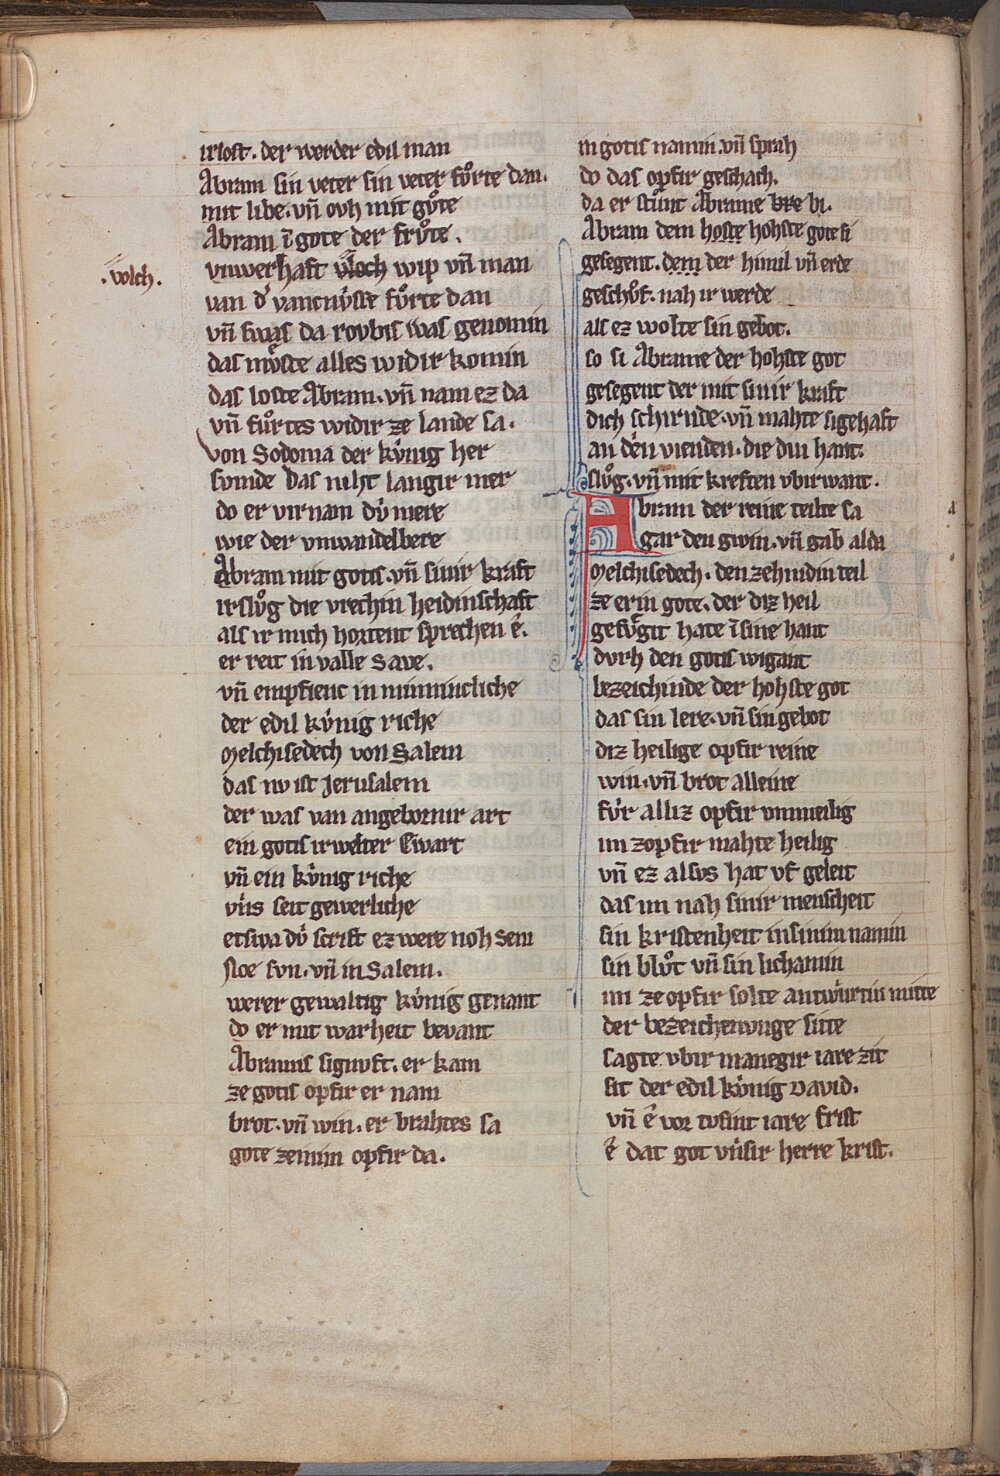 irlost. der werder edil man
Abram sin veter sin veter fůrte dan.
mit libe. vn̄ ovh mit gůte
Abram ī gote der frůte.
vnwerhaft vloch wip vn̄ man
.volch.
van d' vancnv̇ste fůrte dan
vn̄ swas da rovbis was genomin
das mv̊ste alles widir komin
das loste Abram. vn̄ nam ez da
vn̄ fůrtes widir ze lande sa.
von Sodoma der kv̇nig her
svmde das niht langir mer
do er virnam dv̇ mere
wie der vnwandelbere
Abram mit gotis. vn̄ sinir kraft
irslůg die vrechin heidinschaft
als ir mich hortent sprechen ê.
er reit in valle Save.
vn̄ empfienc in minnincliche
der edil kv̇nig riche
Melchisedech von Salem
das nv ist Jerusalem
der was van angebornir art
ein gotis irwelter Ewart
vn̄ ein kv̇nig riche
vn̍s seit gewerliche
etswa dv̇ scrift ez were noh Sem
Noe svn. vn̄ in Salem.
werer gewaltig kv̇nig genant
do er mit warheit bevant
Abramis signvft. er kam
ze gotis opfir er nam
brot. vn̄ win. er brahtes sa
gote zeinim opfir da.
in gotis namin. vn̄ sprah
do das opfir geschach.
da er stůnt Abrame vre bi.
Abram dem hoste hohste gote si
gesegent. dem der himil vn̄ erde
geschůf. nah ir werde
als ez wolte sin gebot.
so si Abrame der hohste got
gesegent der mit sinir kraft
dich schirnde. vn̄ mahte sigehaft
an dên vienden. die din hant.
slůg. vn̄ mit kreften vbirwant.
Abram der reine teilte sa
gar den gwin. vn̄ gab alda
Melchisedech. den zehindin teil
ze erin gote. der diz heil
gefv̊git hate ī sine hant
dvrh den gotis wigant
bezeichinde der hohste got
das sin lere. vn̄ sin gebot
diz heilige opfir reine
win. vn̄ brot alleine
fv̇r alliz opfir vnmeilig
im zopfir mahte heilig
vn̄ ez alsvs hat vf geleit
das im nah sinir menscheit
sin kristenheit in sinim namin
sin blůt vn̄ sin lichamin
im ze opfir solte antwv̇rtin mitte
der bezeichenvnge sitte
sagte vbir manegir iare zit
sit der edil kv̇nig David.
vn̄ ê vor tvsint iare frist
ê dat got vn̍sir herre krist.